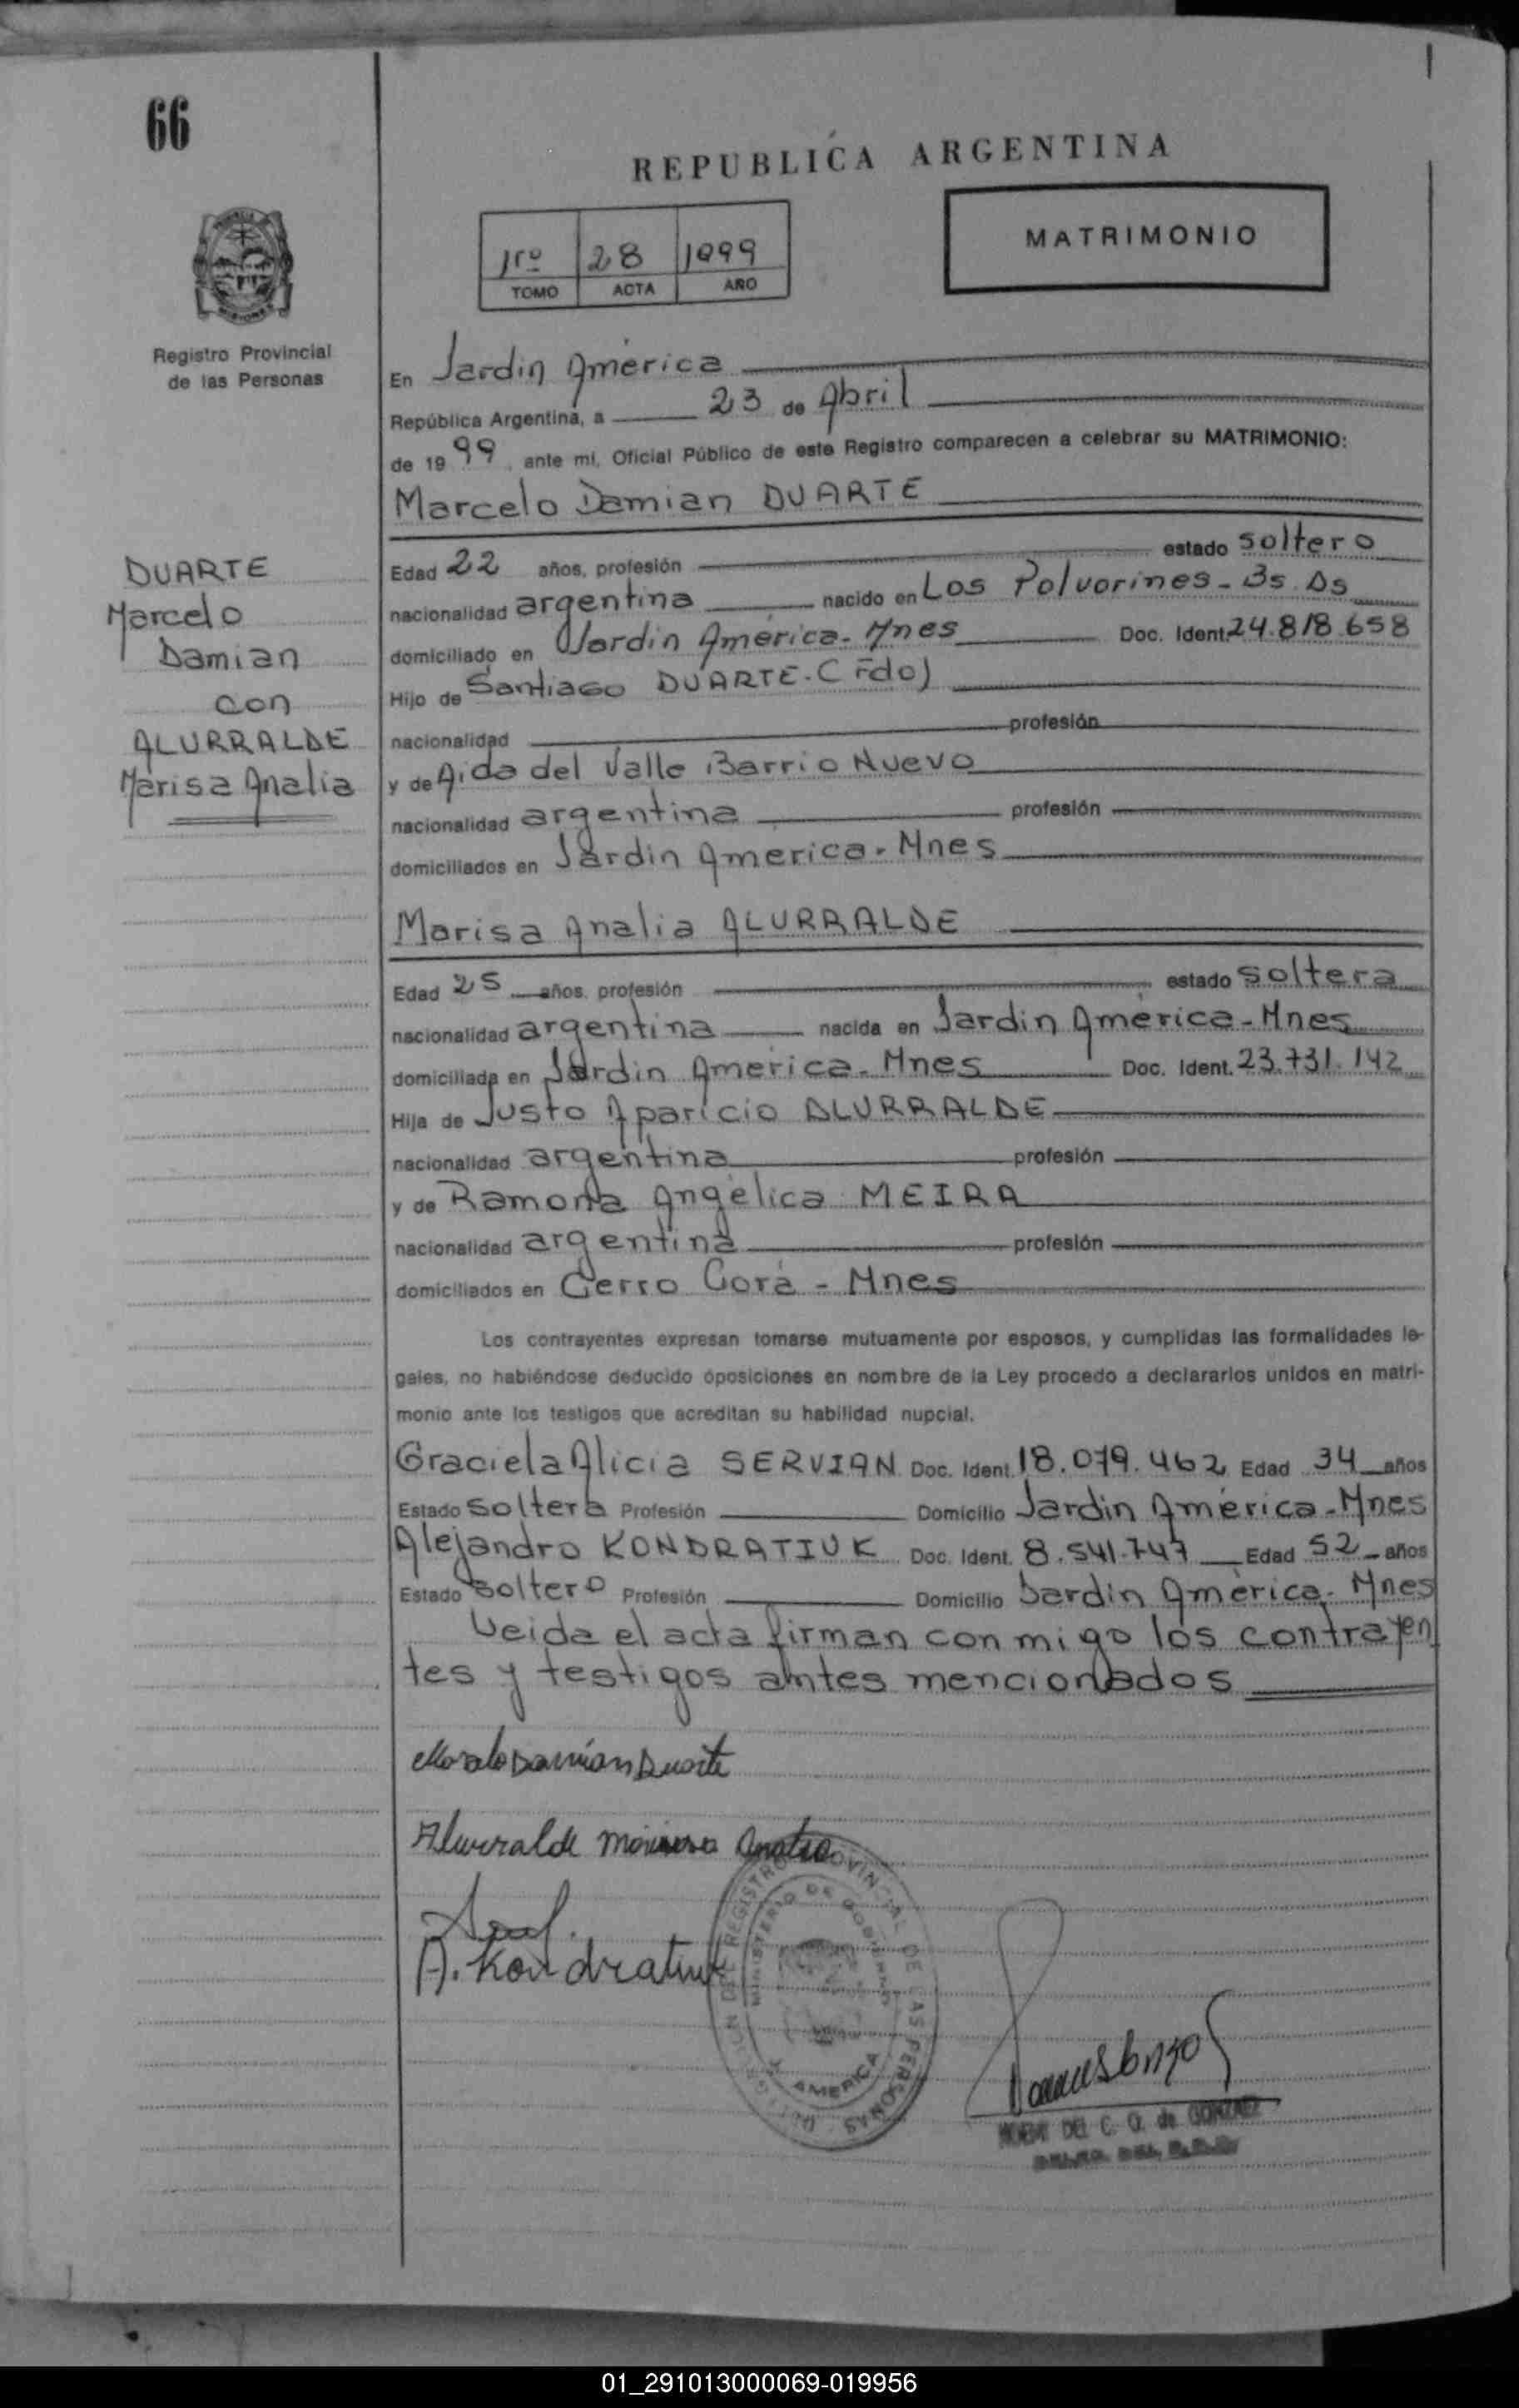 66
REPUBLICA ARGENTINA
MATRIMONIO
1ro 28 1999
TOMO ACTA AÑO
Registro Provincial
de las Personas
En Jardin América
República Argentina, a 23 de Abril
de 1999, ante mi, Oficial Público de este Registro comparecen a celebrar su MATRIMONIO:
Marcelo Damian DUARTE
DUARTE
Marcelo
Damian
con
ALURRALDE
Marisa Analia
Edad 22 años, profesión estado soltero
nacionalidad argentina nacido en Los Polvorines - Bs. As
domiciliado en Jardin América - Mnes Doc. Ident. 24.818.658
Hijo de Santiago DUARTE. (Fdo)
nacionalidad profesión
y de Aida del Valle Barrio Nuevo
nacionalidad argentina profesión
domiciliados en Jardin America - Mnes
Marisa Analia ALURRALDE
Edad 25 años, profesión estado soltera
nacionalidad argentina nacida en Jardin América - Mnes
domiciliada en Jardin America - Mnes Doc. Ident. 23.731.142
Hija de Justo Aparicio ALURRALDE
nacionalidad argentina profesión
y de Ramona Angélica MEIRA
nacionalidad argentina profesión
domiciliados en Cerro Corá - Mnes
Los contrayentes expresan tomarse mutuamente por esposos, y cumplidas las formalidades le-
gales, no habiéndose deducido oposiciones en nombre de la Ley procedo a declararlos unidos en matri-
monio ante los testigos que acreditan su habilidad nupcial.
Graciela Alicia SERVIAN Doc. Ident. 18.079.462 Edad 34 años
Estado soltera Profesión Domicilio Jardin América - Mnes
Alejandro KONDRATIUK Doc. Ident. 8.541.747 Edad 52 años
Estado soltero Profesión Domicilio Jardin América - Mnes
Leida el acta firman con migo los contrayen
tes y testigos antes mencionados
Marcelo Damián Duarte
Alurralde Marisa Analia
A. Kondratiuk
REGISTRO PROVINCIAL DE LAS PERSONAS
MINISTERIO DE GOBIERNO
AMERICA
DEL C. G. de GONZALEZ
01_291013000069-019956